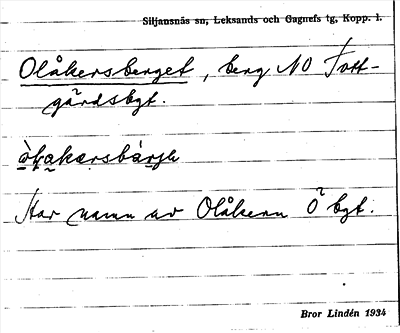 Siljansnäs sn, Leksands och Gagnefs tg, Kopp. l.
Olåkersberget, berg NO Tott-
gårdsbyt.
Har namn av Olåkern Ö byt.
Bror Lindén 1934